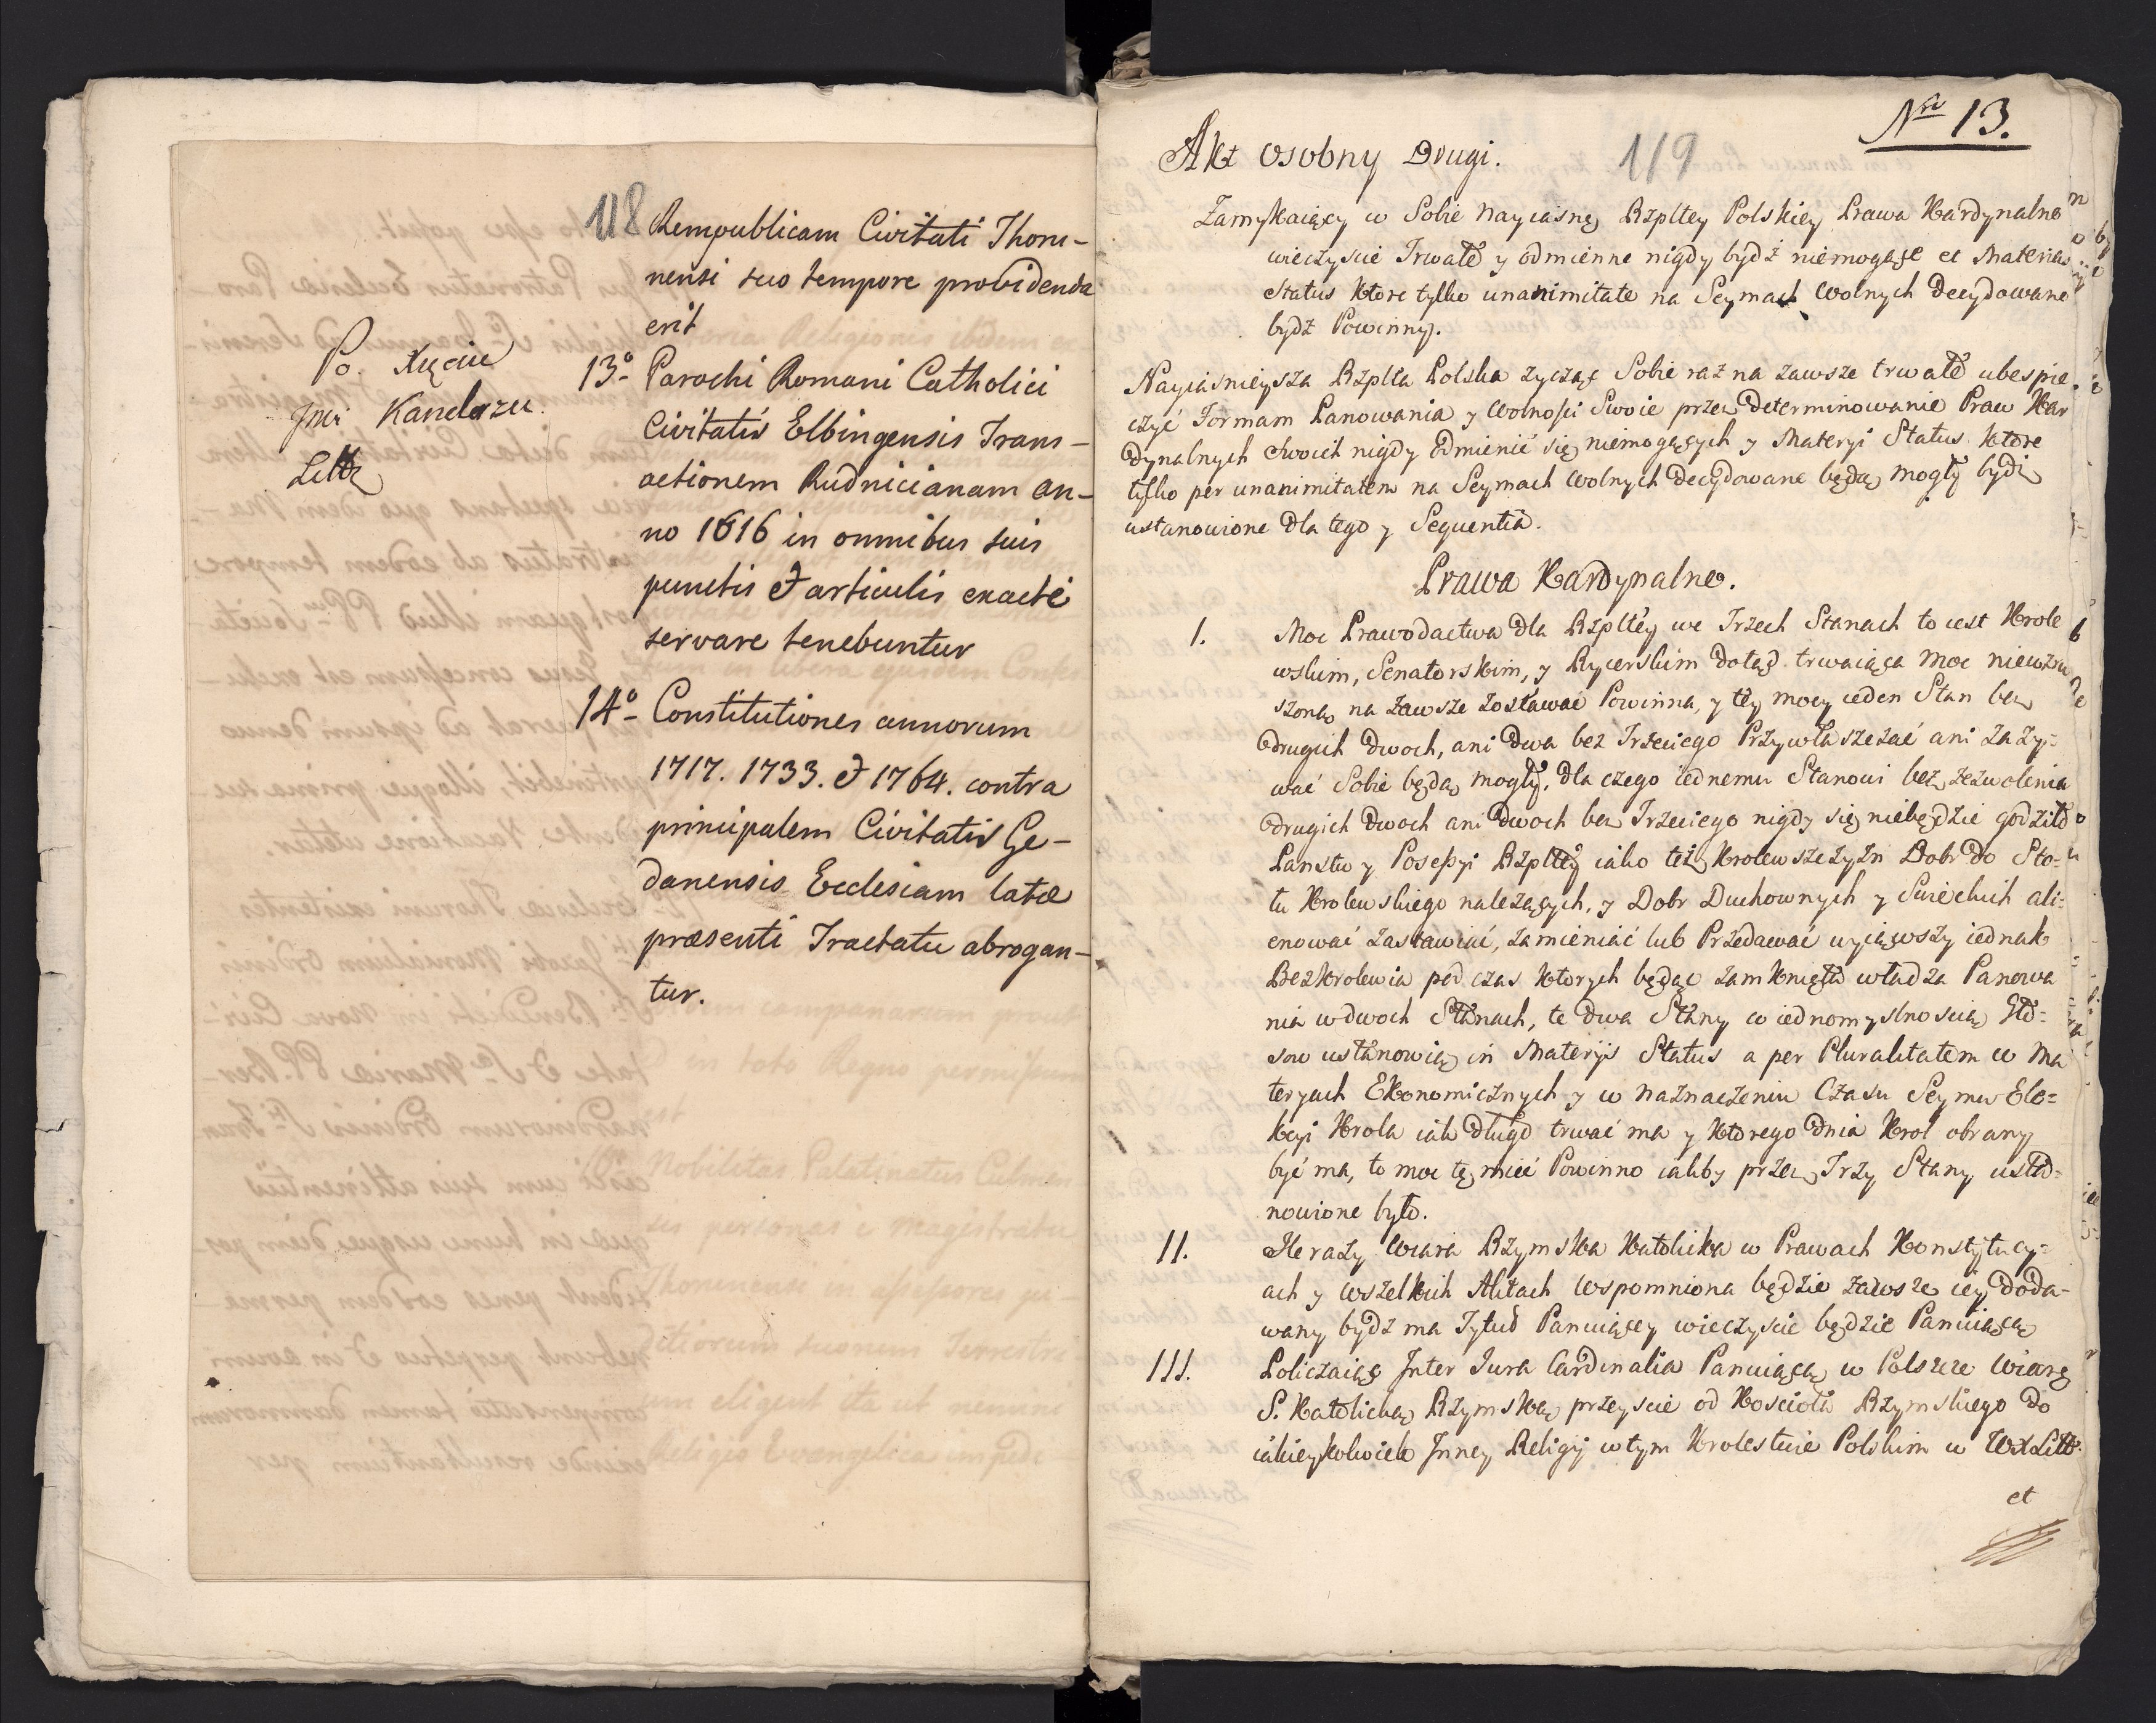 118
Rempublicam Civitati Thoru-
nensi suo tempore providenda
erit
Po. Xięciu
Jmci Kanclerzu
Littz
13º Parochi Romani Catholici
Civitatis Elbingensis Trans-
actionem Rudnicianam an-
no 1616 in omnibus suis
punctis & articulis exacte
servare tenebuntur
14º Constitutiones annorum
1717. 1733. & 1764. contra
principalem Civitatis Ge-
danensis Ecclesiam latæ
præsenti Tractatu abrogan-
tur.
Nro 13.
119
Akt osobny Drugi.
Zamykaiący w Sobie Nayiasnę Rzpltey Polskiey Prawa Kardynalne
wieczyscie Trwałe y odmienne nigdy bydź niemogące et Materias
status ktore tylko unanimitate na Seymach Wolnych Decydowane
bydź Powinny.
Nayiasnieysza Rzplta Polska zycząc Sobie raz na zawsze trwałe ubespie-
czyć Formam Panowania y Wolnosci Swoie przez Determinowanie Praw Kar
dynalnych swoich nigdy odmienić się niemogących y Materyi Status ktore
tylko per unanimitatem na Seymach Wolnych Decydowane będą mogły bydź
ustanowione dla tego y Sequentia.
Prawa Kardynalne.
1. Moc Prawodactwa dla Rzpltey we Trzech Stanach to iest Krole
wskim, Senatorskim, y Rycerskim dotąd trwaiąca moc niewzru
szona na zawsze zostawać Powinna, y tey mocy ieden Stan bez
drugich dwoch, ani dwa bez Trzeciego Przywłaszczać ani zazy=
wać Sobie będą mogły, dla czego iednemu Stanowi bez zezwolenia
drugich dwoch ani dwoch bez Trzeciego nigdy się niebędzie godziło
Panstw y Posessyi Rzpltey iako też Krolewszczyzn Dobr do Sto-
łu Krolewskiego nalezących, y Dobr Duchownych y Swieckich ali=
enować zastawiać, zamieniać lub Przedawać wyiąwszy iednak
Bezkrolewia pod czas ktorych będąc zamknięta władza Panowa
nia w dwoch Stanach, te dwa Stany w iednomyslnoscią Gło=
sow ustanowią in Materijs Status a per Pluralitatem w Ma
teryach Ekonomicznych y w naznaczeniu Czasu Seymu Ele=
kcyi Krola iak długo trwać ma y ktorego dnia Krol obrany
być ma, to moc tę mieć Powinno iakby przez Trzy Stany usta=
nowione było.
II. Ile razy Wiara Rzymska Katolicka w Prawach Konstytucy=
ach y wszelkich Aktach wspomniona będzie zawsze iey doda-
wany bydź ma Tytuł Panuiącey wieczyscie będzie Panuiącą
III. Policzaiąc Inter Jura Cardinalia Panuiącą w Polszcze Wiarę
S. Katolicką Rzymską przeyscie od Kościoła Rzymskiego do
iakieykolwiek Inney Religij w tym Krolestwie Polskim w WXLitt.
et